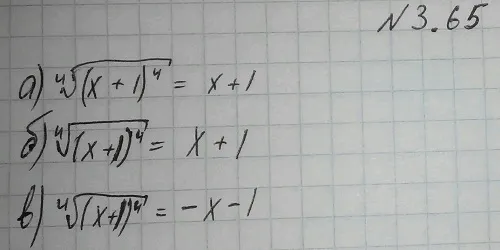 № 3.65
а) ∜(x + 1)⁴ = x + 1
б) ∜(x+1)⁴ = x + 1
в) ∜(x+1)⁴ = -x - 1